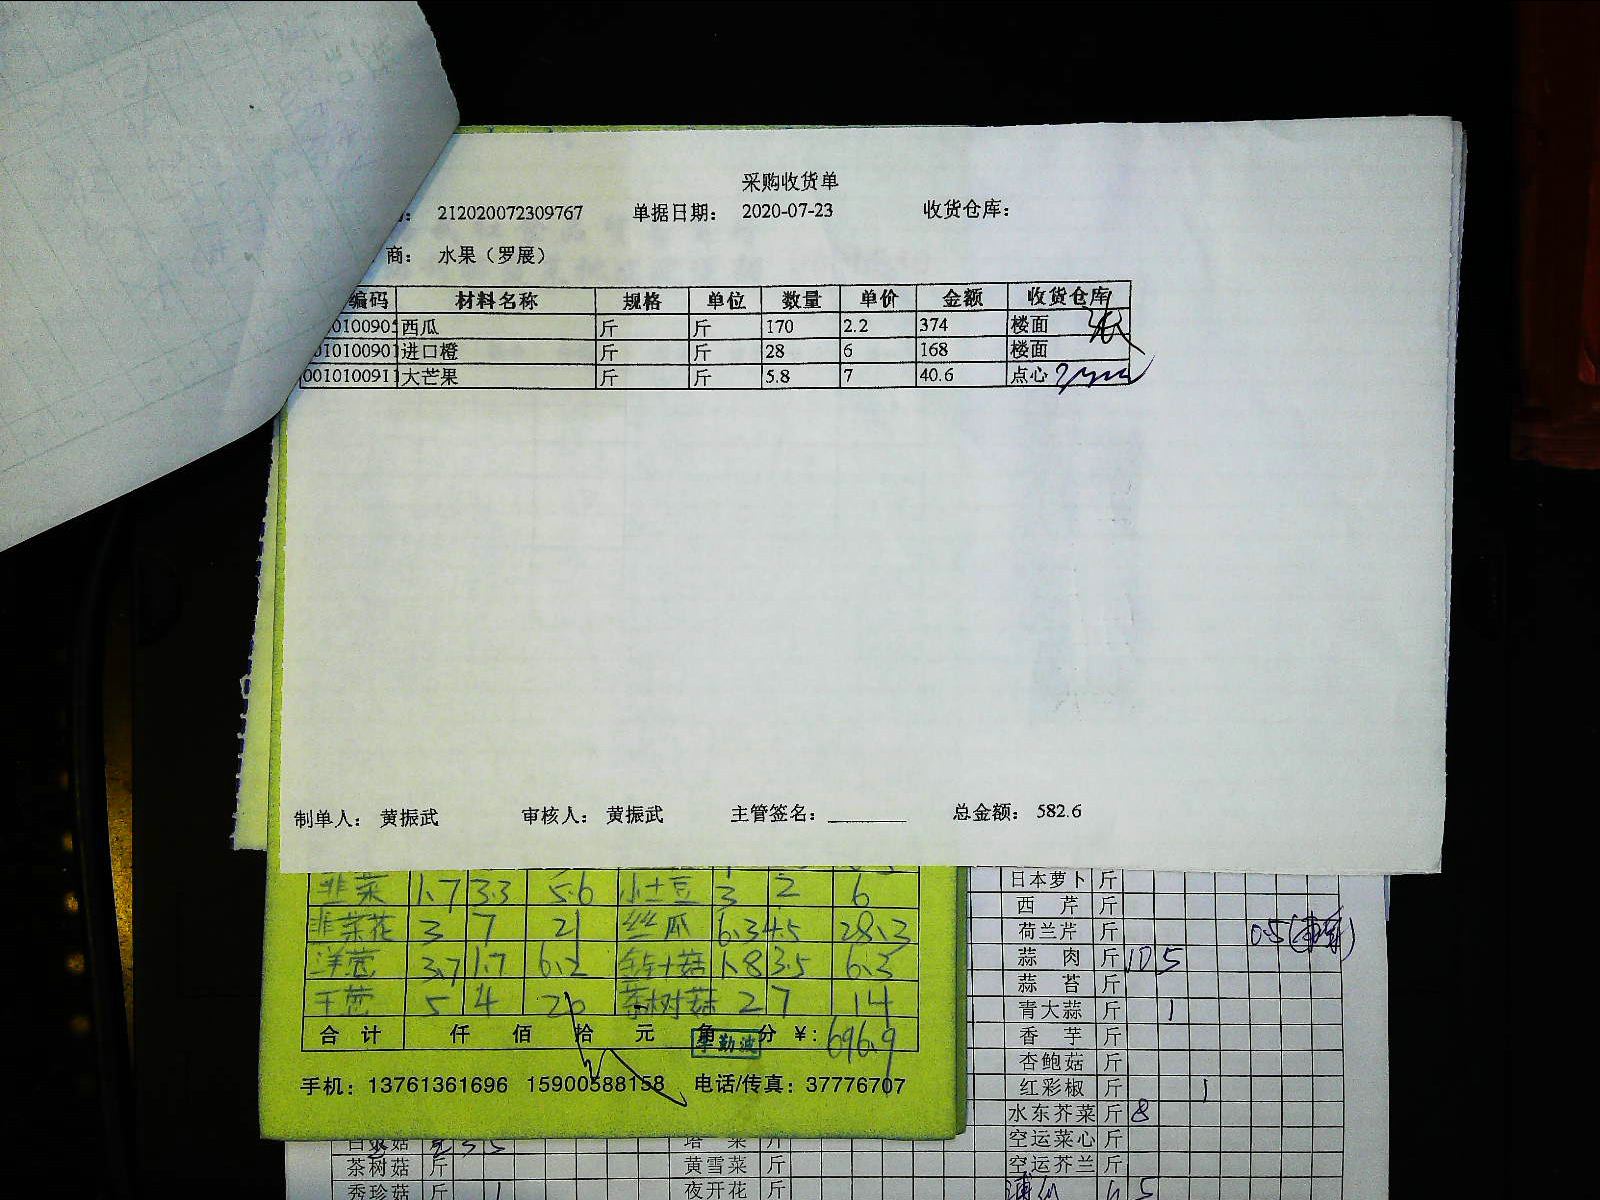 采购收货单
212020072309767 单据日期： 2020-07-23 收货仓库：
商： 水果（罗展）
编码 材料名称 规格 单位 数量 单价 金额 收货仓库
西瓜 斤 斤 170 2.2 374 楼面
进口橙 斤 斤 28 6 168 楼面
0010100911 大芒果 斤 斤 5.8 7 40.6 点心
制单人： 黄振武 审核人： 黄振武 主管签名： 总金额： 582.6
韭菜 1.7 3.3 5.6 小土豆 3 2 6
韭菜花 3 7 21 丝瓜 6.3 4.5 28.3
洋葱 3.7 1.7 6.2 1.8 3.5 6.3
干葱 5 4 20 茶树菇 2 7 14
合计 仟 佰 拾 元 角 分 ¥： 696.9
李勤波
手机：13761361696 15900588158 电话/传真：37776707
日本萝卜 斤
西芹 斤
荷兰芹 斤 0.5
蒜肉 斤 10 5
蒜苔 斤
青大蒜 斤 1
香芋 斤
杏鲍菇 斤
红彩椒 斤 1
水东芥菜 斤 8
空运菜心 斤
空运芥兰 斤
茶树菇 斤
秀珍菇 斤 1
塔菜 斤
黄雪菜 斤
夜开花 斤